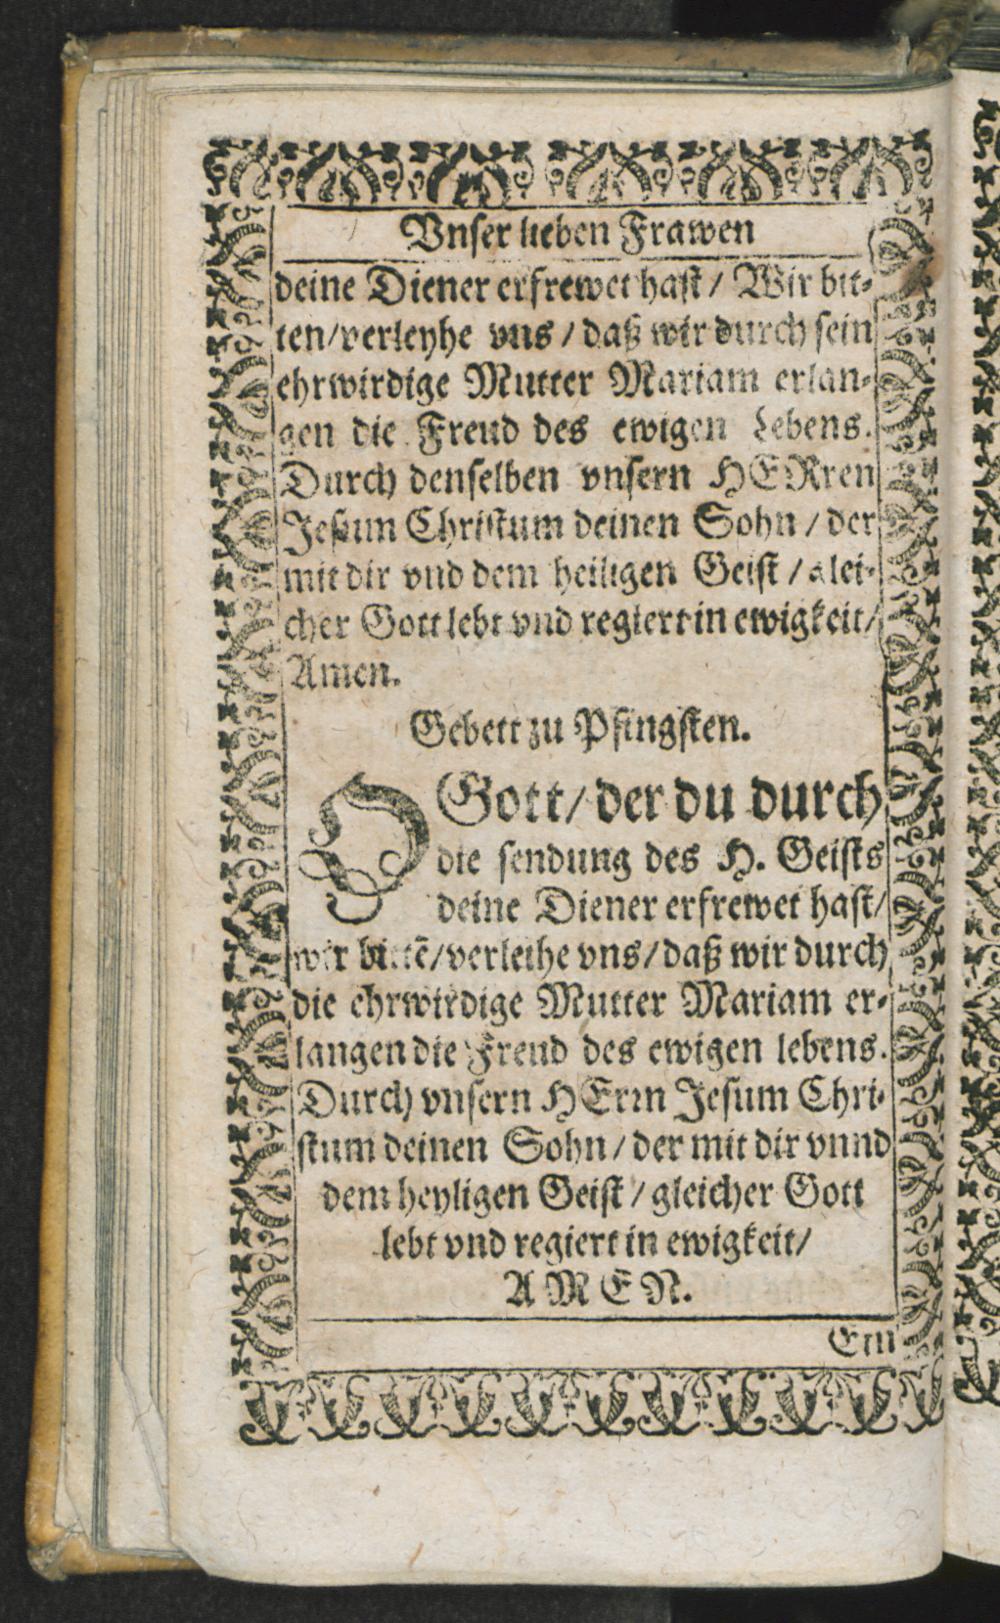 Vnser lieben Frawen
deine Diener erfrewet hast / Wir bit-
ten/verleyhe vns / daß wir durch sein
ehrwirdige Mutter Mariam erlan-
gen die Freud des ewigen Lebens.
Durch denselben vnsern HERren
Jesum Christum deinen Sohn / der
mit dir vnd dem heiligen Geist / glei-
cher Gott lebt vnd regiert in ewigkeit/
Amen.
Gebett zu Pfingsten.
O Gott/ der du durch
die sendung des H. Geists
deine Diener erfrewet hast/
wir bittẽ/verleihe vns/daß wir durch
die ehrwirdige Mutter Mariam er-
langen die Freud des ewigen lebens.
Durch vnsern HErrn Jesum Chri-
stum deinen Sohn/ der mit dir vnnd
dem heyligen Geist / gleicher Gott
lebt vnd regiert in ewigkeit/
AMEN.
Ein